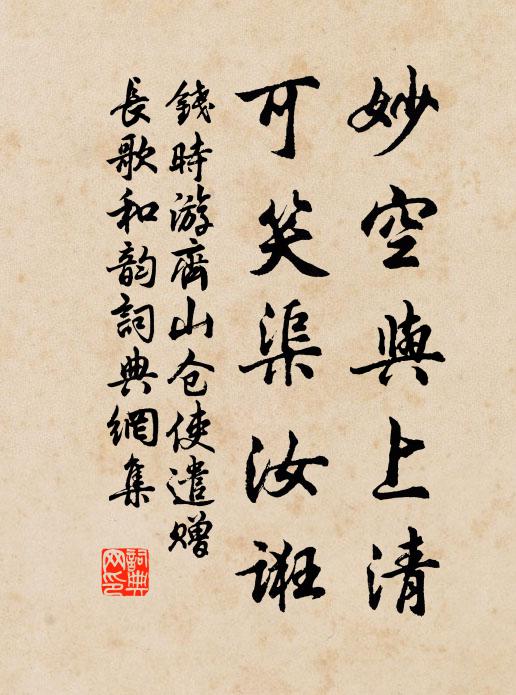 妙空與上清
可笑渠汝誑
錢時游齊山仓使遣赠
長歌和韵詞典網集
詞典网印